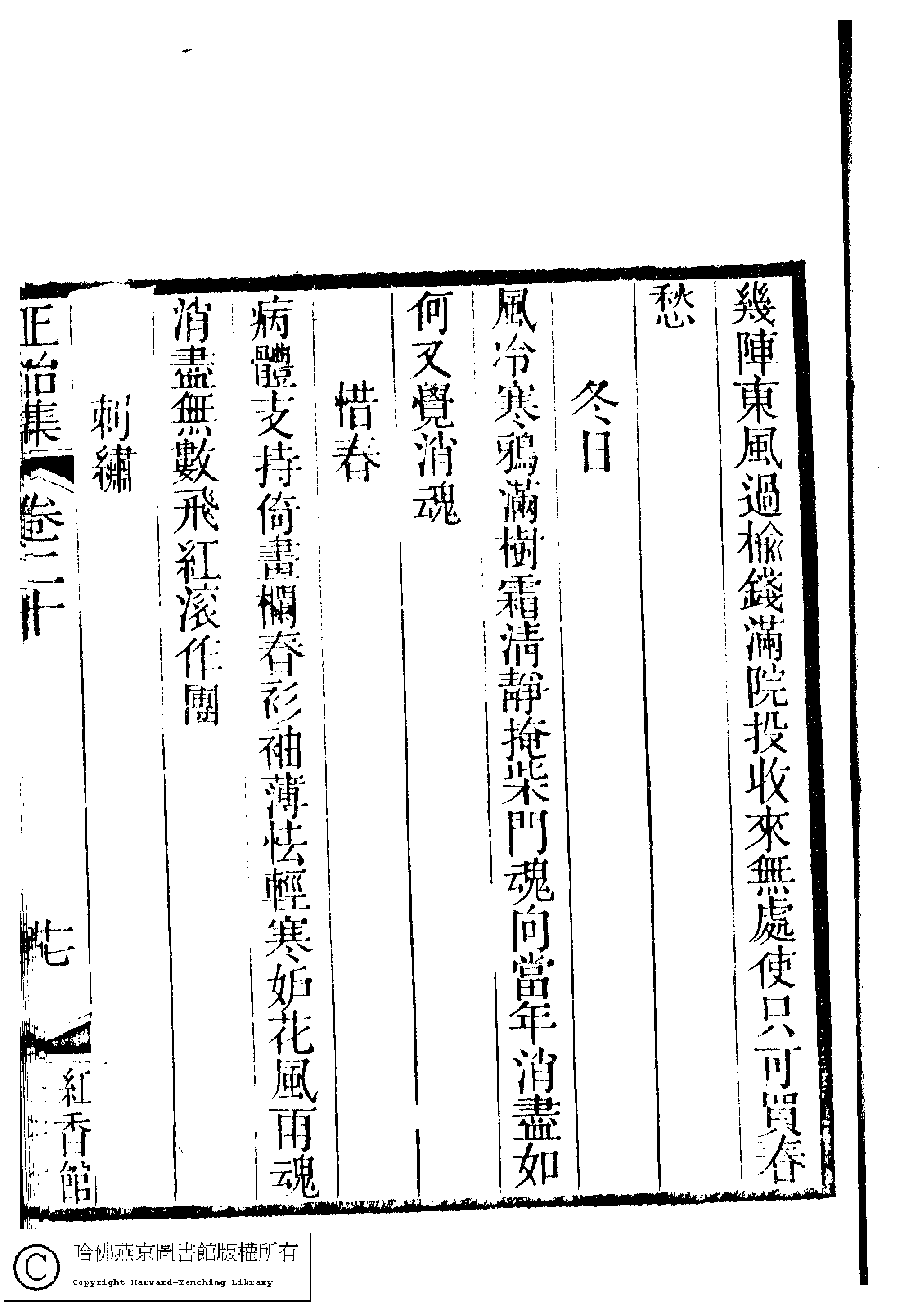 幾陣東風過榆錢滿院投收來無處使只可買春
愁
冬日
風冷寒鴉滿樹霜清靜掩柴門魂向當年消盡如
何又覺消魂
惜春
病體支持倚畫欄春衫袖薄怯輕寒妬花風雨魂
消盡無數飛紅滚作團
刺繡
正始集 卷二十 七 紅香館
哈佛燕京圖書館版權所有
Copyright Harvard-Yenching Library